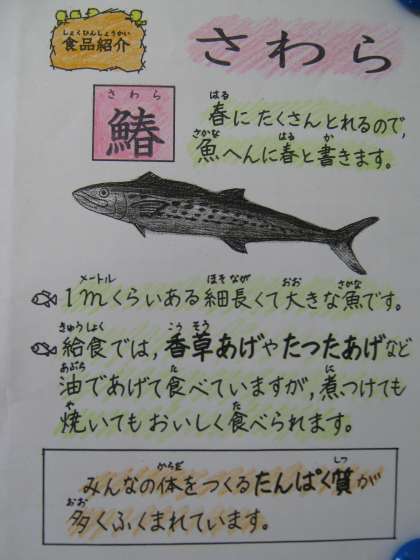 しょくひんしょうかい
食品紹介
さわら
さわら
鰆
はる
春にたくさんとれるので,
さかな はる か
魚へんに春と書きます。
メートル ほそなが おお さかな
1mくらいある細長くて大きな魚です。
きゅうしょく こうそう
給食では,香草あげやたつたあげなど
あぶら た に
油であげて食べていますが,煮つけても
や た
焼いてもおいしく食べられます。
からだ しつ
みんなの体をつくるたんぱく質が
おお
多くふくまれています。